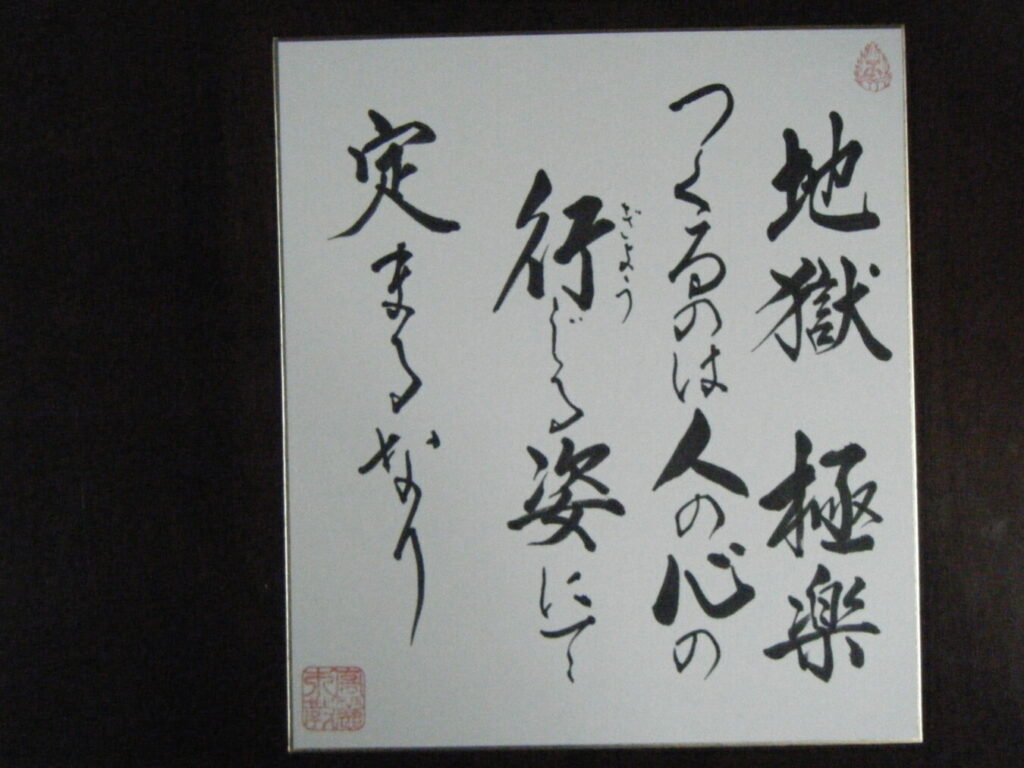 地獄 極楽
つくるのは人の心の
行じる姿にて
ぎょう
定まるなり